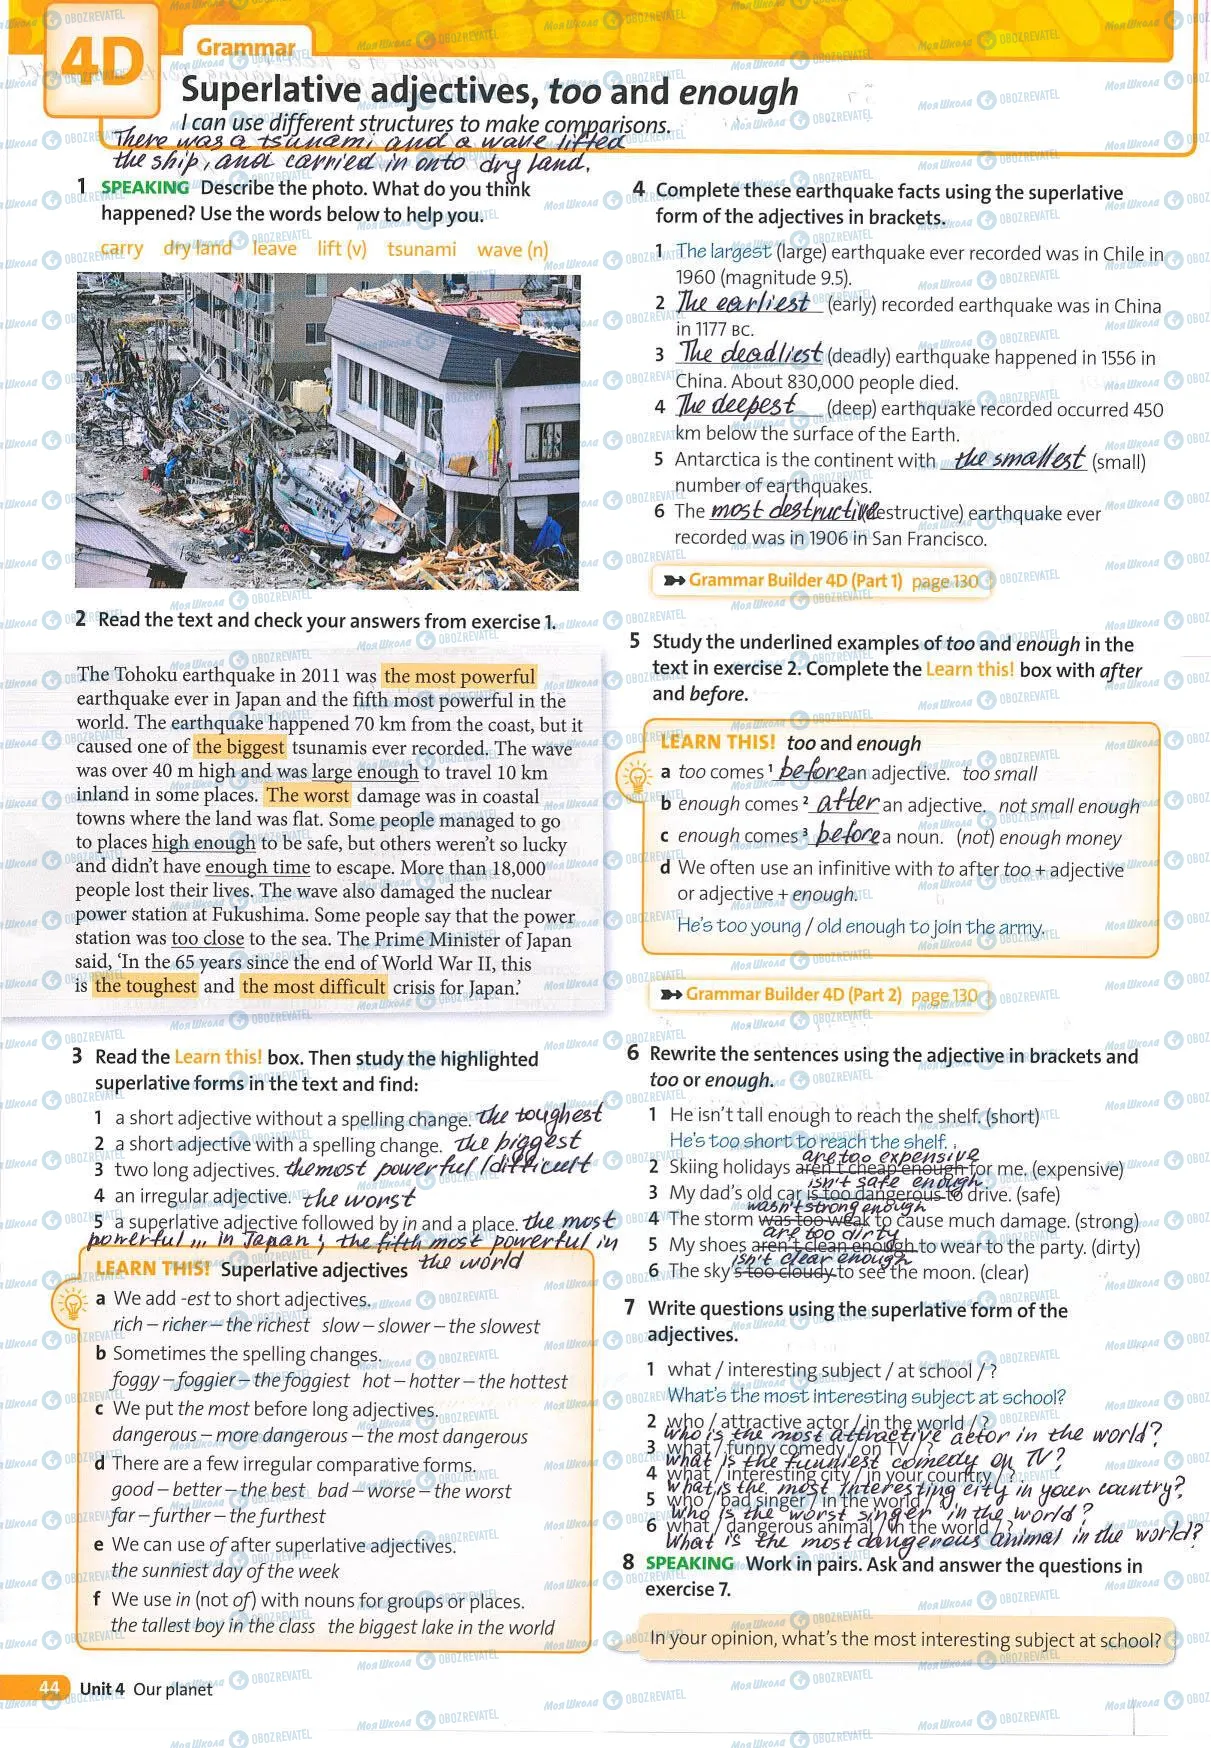 4D
Grammar
Superlative adjectives, too and enough
I can use different structures to make comparisons.
There was a tsunami and a wave lifted
the ship, and carried in onto dry land.
1 SPEAKING Describe the photo. What do you think
happened? Use the words below to help you.
carry dry land leave lift (v) tsunami wave (n)
2 Read the text and check your answers from exercise 1.
The Tohoku earthquake in 2011 was the most powerful
earthquake ever in Japan and the fifth most powerful in the
world. The earthquake happened 70 km from the coast, but it
caused one of the biggest tsunamis ever recorded. The wave
was over 40 m high and was large enough to travel 10 km
inland in some places. The worst damage was in coastal
towns where the land was flat. Some people managed to go
to places high enough to be safe, but others weren't so lucky
and didn't have enough time to escape. More than 18,000
people lost their lives. The wave also damaged the nuclear
power station at Fukushima. Some people say that the power
station was too close to the sea. The Prime Minister of Japan
said, 'In the 65 years since the end of World War II, this
is the toughest and the most difficult crisis for Japan.'
3 Read the Learn this! box. Then study the highlighted
superlative forms in the text and find:
1 a short adjective without a spelling change. the toughest
2 a short adjective with a spelling change. the biggest
3 two long adjectives. the most powerful / difficult
4 an irregular adjective. the worst
5 a superlative adjective followed by in and a place. the most
powerful ... in Japan; the fifth most powerful in
the world
LEARN THIS! Superlative adjectives
a We add -est to short adjectives.
rich – richer – the richest slow – slower – the slowest
b Sometimes the spelling changes.
foggy – foggier – the foggiest hot – hotter – the hottest
c We put the most before long adjectives.
dangerous – more dangerous – the most dangerous
d There are a few irregular comparative forms.
good – better – the best bad – worse – the worst
far – further – the furthest
e We can use of after superlative adjectives.
the sunniest day of the week
f We use in (not of) with nouns for groups or places.
the tallest boy in the class the biggest lake in the world
44 Unit 4 Our planet
4 Complete these earthquake facts using the superlative
form of the adjectives in brackets.
1 The largest (large) earthquake ever recorded was in Chile in
1960 (magnitude 9.5).
2 The earliest (early) recorded earthquake was in China
in 1177 BC.
3 The deadliest (deadly) earthquake happened in 1556 in
China. About 830,000 people died.
4 The deepest (deep) earthquake recorded occurred 450
km below the surface of the Earth.
5 Antarctica is the continent with the smallest (small)
number of earthquakes.
6 The most destructive (destructive) earthquake ever
recorded was in 1906 in San Francisco.
Grammar Builder 4D (Part 1) page 130
5 Study the underlined examples of too and enough in the
text in exercise 2. Complete the Learn this! box with after
and before.
LEARN THIS! too and enough
a too comes 1 before an adjective. too small
b enough comes 2 after an adjective. not small enough
c enough comes 3 before a noun. (not) enough money
d We often use an infinitive with to after too + adjective
or adjective + enough.
He's too young / old enough to join the army.
Grammar Builder 4D (Part 2) page 130
6 Rewrite the sentences using the adjective in brackets and
too or enough.
1 He isn't tall enough to reach the shelf. (short)
He's too short to reach the shelf.
are too expensive
2 Skiing holidays aren't cheap enough for me. (expensive)
isn't safe enough
3 My dad's old car is too dangerous to drive. (safe)
wasn't strong enough
4 The storm was too weak to cause much damage. (strong)
are too dirty
5 My shoes aren't clean enough to wear to the party. (dirty)
isn't clear enough
6 The sky's too cloudy to see the moon. (clear)
7 Write questions using the superlative form of the
adjectives.
1 what / interesting subject / at school / ?
What's the most interesting subject at school?
2 who / attractive actor / in the world / ?
Who is the most attractive actor in the world?
3 what / funny comedy / on TV / ?
What is the funniest comedy on TV?
4 what / interesting city / in your country / ?
What is the most interesting city in your country?
5 who / bad singer / in the world / ?
Who is the worst singer in the world?
6 what / dangerous animal / in the world / ?
What is the most dangerous animal in the world?
8 SPEAKING Work in pairs. Ask and answer the questions in
exercise 7.
In your opinion, what's the most interesting subject at school?
Моя Школа OBOZREVATEL